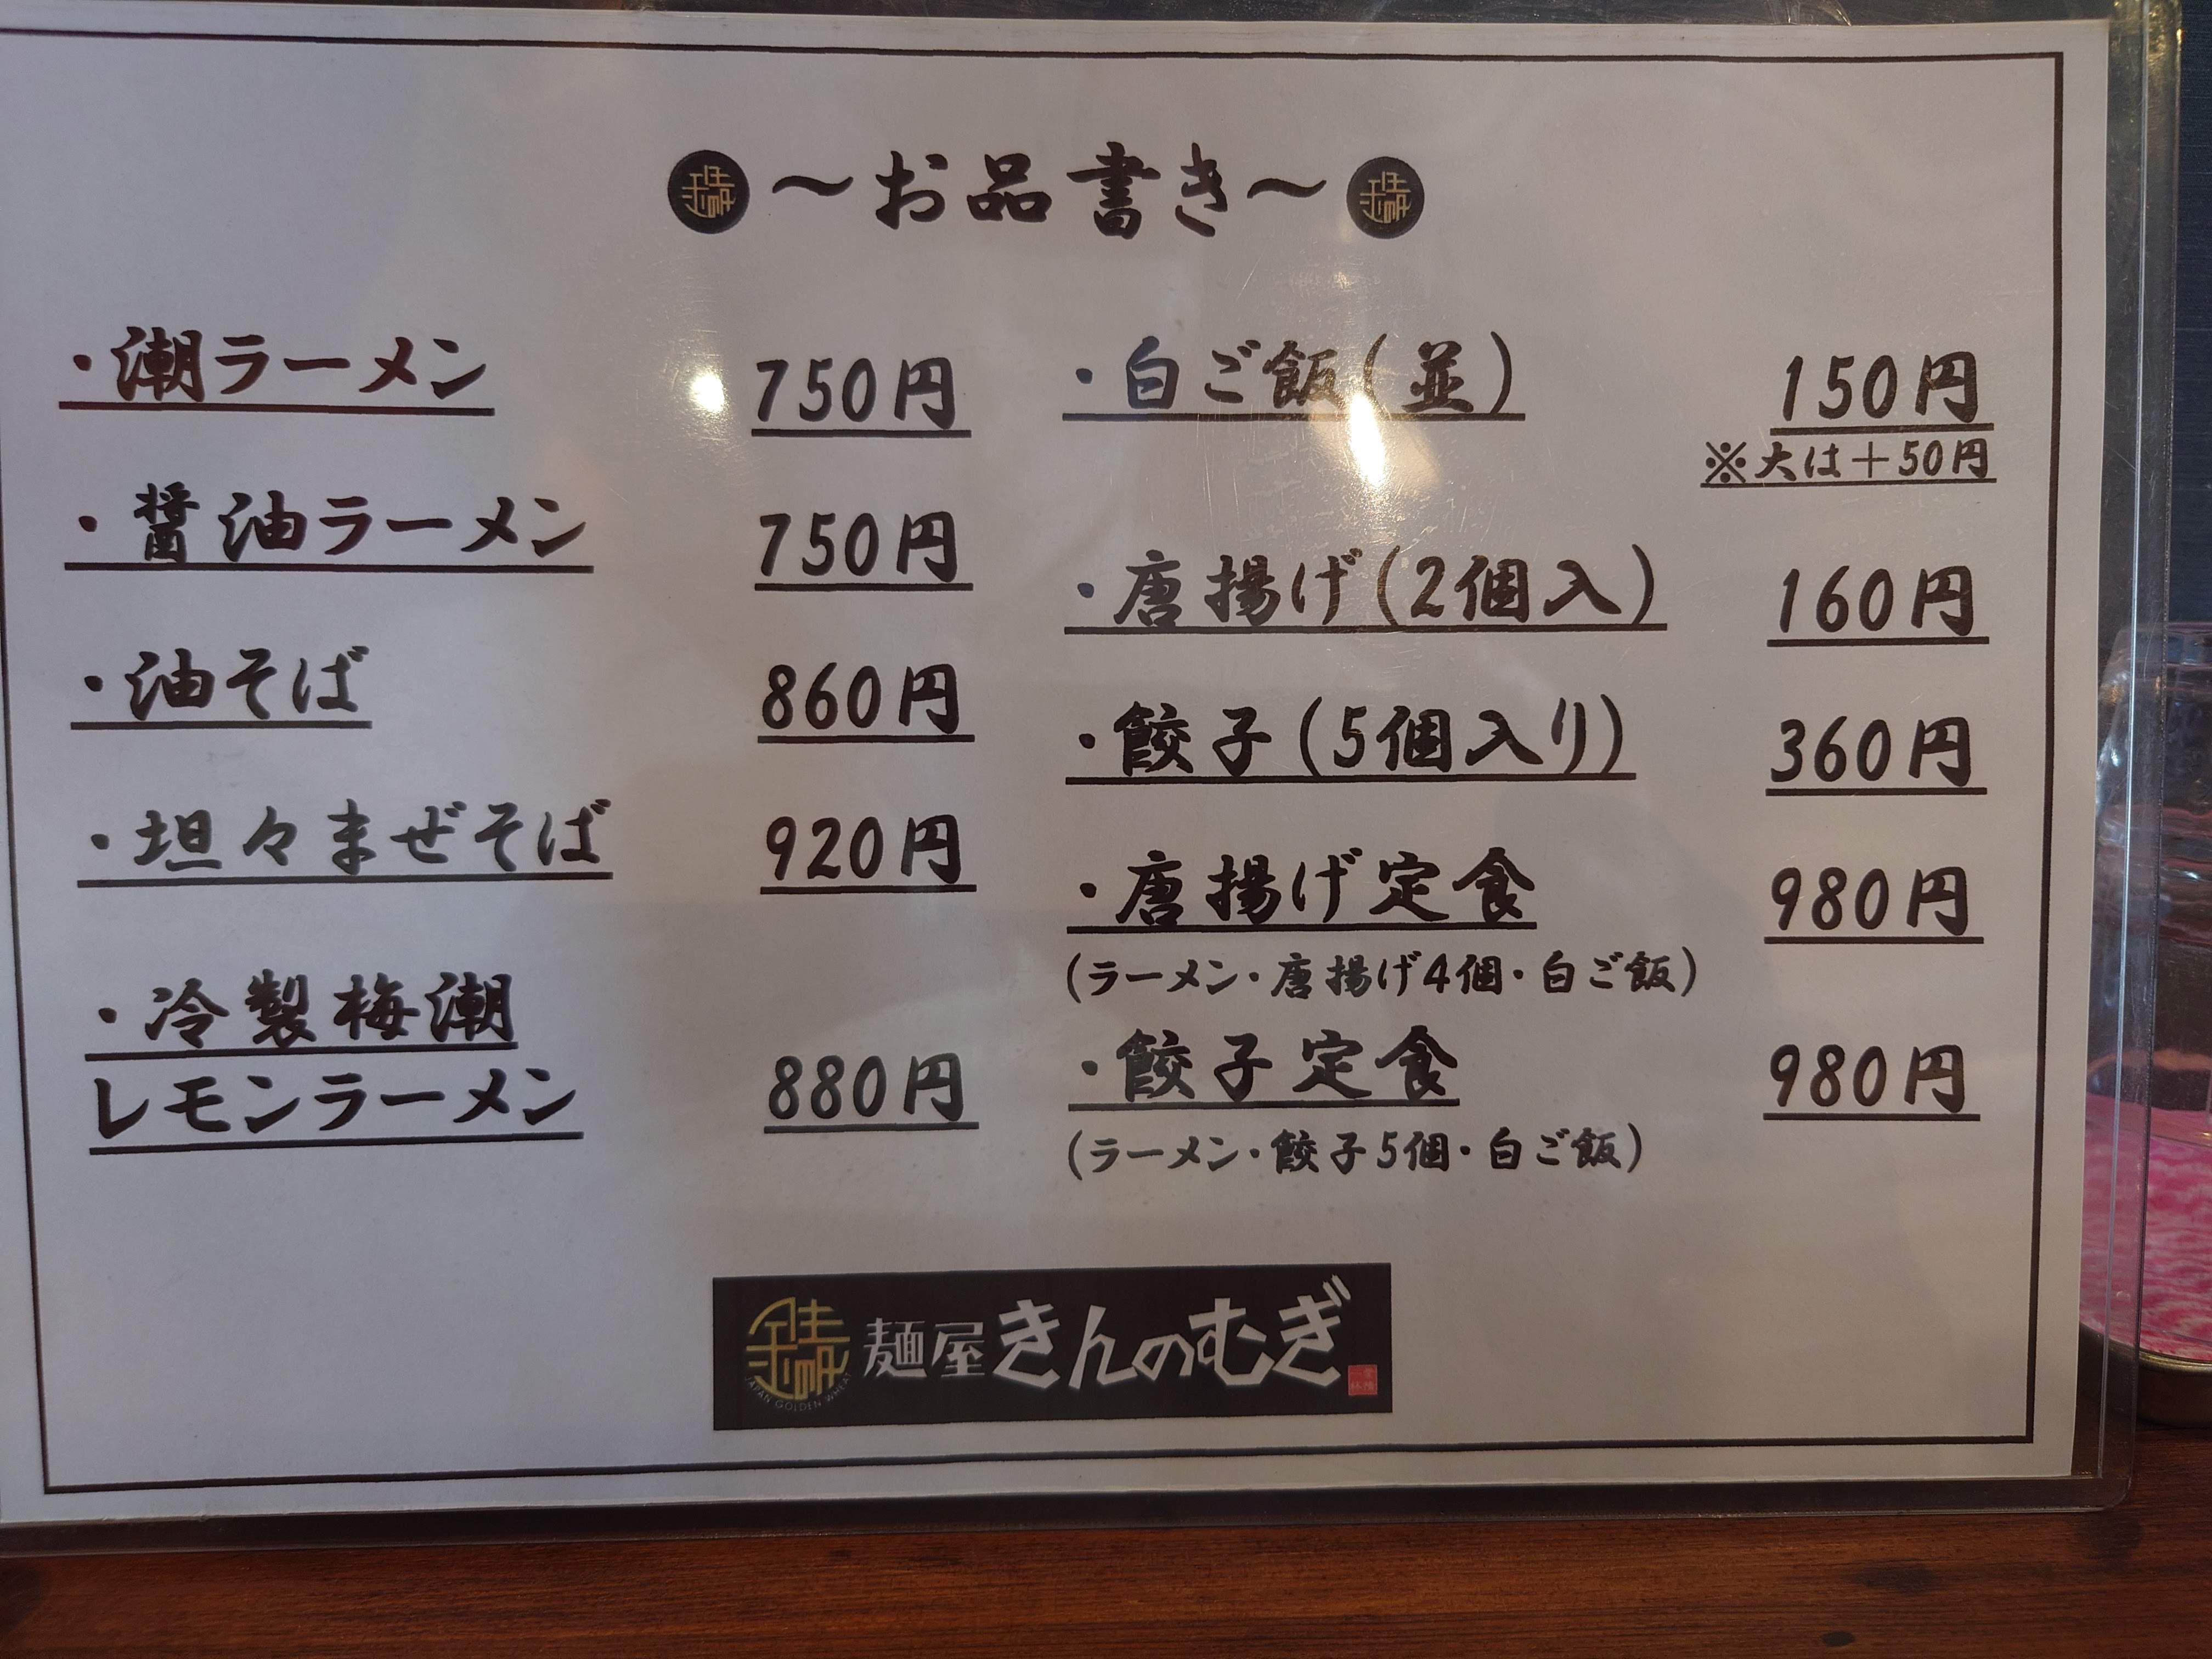 ～お品書き～
・潮ラーメン 750円
・醤油ラーメン 750円
・油そば 860円
・坦々まぜそば 920円
・冷製梅潮
レモンラーメン 880円
・白ご飯(並) 150円
※大は＋50円
・唐揚げ(2個入) 160円
・餃子(5個入り) 360円
・唐揚げ定食 980円
(ラーメン・唐揚げ4個・白ご飯)
・餃子定食 980円
(ラーメン・餃子5個・白ご飯)
麺屋きんのむぎ
JAPAN GOLDEN WHEAT